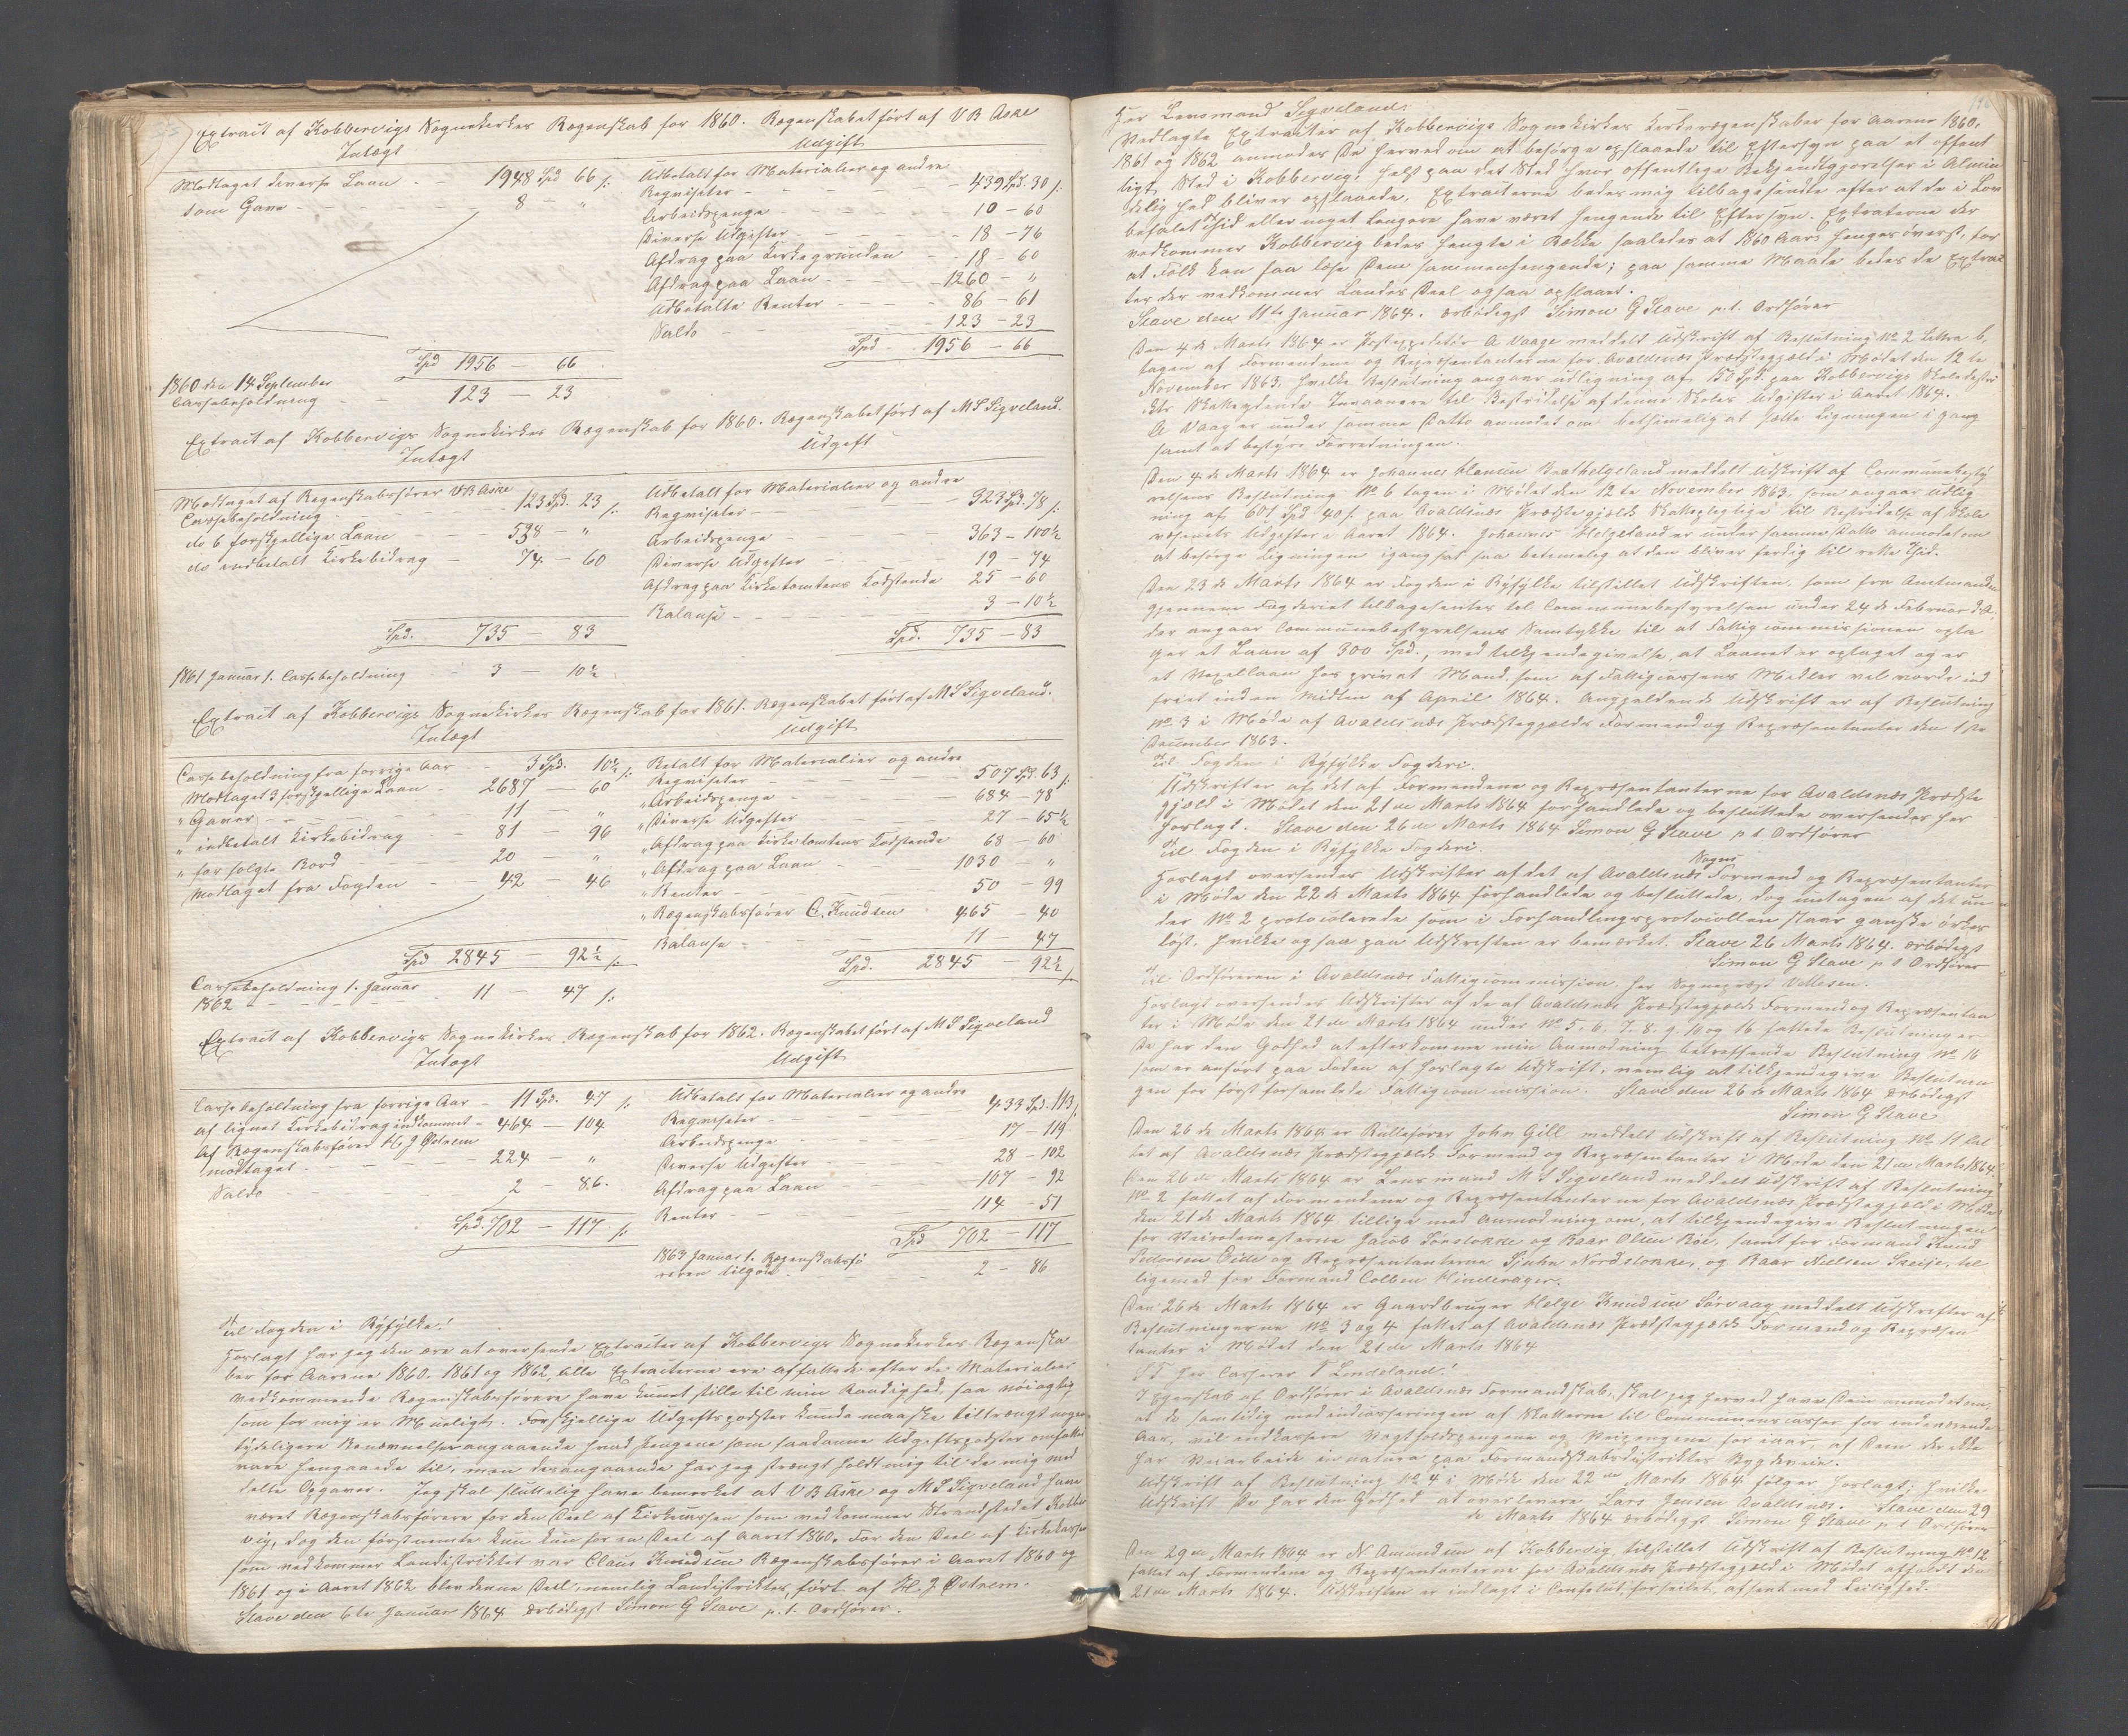 Extract af Kobbervigs Sognekirkes Regenskab for 1860. Regenskabet ført af V B Aske
Intægt Udgift
Modtaget diverse Laan - 1948 Spd 66 s:
som Gave - 8 - "
Spd 1956 - 66
1860 den 14 September
Cassebeholdning - 123 - 23
Udbetalt for Materialier og andre
Reqvisiter - 439 Spd. 30 s:
Arbeidspenge - 10 - 60
Diverse Udgifter - 18 - 76
Afdrag paa Kirkegrunden - 18 - 60
Afdrag paa Laan - 1260 - "
Udbetalte Renter - 86 - 61
Saldo - 123 - 23
Spd - 1956 - 66
Extract af Kobbervigs Sognekirkes Regenskab for 1860. Regenskabet ført af M S Sigveland.
Intægt Udgift
Modtaget af Regenskabsfører V B Aske
Cassebeholdning - 123 Spd. 23 s:
do 6 forskjellige Laan - 538 - "
do indbetalt Kirkebidrag - 74 - 60
Spd. 735 - 83
1861 Januar 1. Cassebeholdning - 3 - 10½
Udbetalt for Materialier og andre
Reqvisiter - 323 Spd. 78 s:
Arbeidspenge - 363 - 100½
Diverse Udgifter - 19 - 74
Afdrag paa Kirketomtens Kostende 25 - 60
Balanse - 3 - 10½
Spd. 735 - 83
Extract af Kobbervigs Sognekirkes Regenskab for 1861. Regenskabet ført af M S Sigveland.
Intægt Udgift
Cassebeholdning fra forrige Aar - 3 Spd. 10½ s:
Modtaget 3 forskjellige Laan - 2687 - 60
" Gaver - 11 - "
" indbetalt Kirkebidrag - 81 - 96
" for solgte Bord - 20 - "
Modtaget fra Fogden - 42 - 46
Spd 2845 - 92½ s:
Cassebeholdning 1. Januar
1862 - 11 - 47 s:
Betalt for Materialier og andre
Reqvisiter - 507 Spd. 63 s:
" Arbeidspenge - 684 - 78
" Diverse Udgifter - 27 - 65½
" Afdrag paa Kirketomtens Kostende 68 - 60
" Afdrag paa Laan - 1030 - "
" Renter - 50 - 99
" Regenskabsfører C. Knudsen 465 - 40
Balanse - 11 - 47
Spd. 2845 - 92½ s
Extract af Kobbervigs Sognekirkes Regenskab for 1862. Regenskabet ført af M S Sigveland
Intægt Udgift
Cassebeholdning fra forrige Aar - 11 Spd. 47 s:
af lignet Kirkebidrag indkommet - 464 - 104
af Regenskabsfører H. J Østrem
modtaget - 224 - "
Saldo - 2 - 86.
Spd. 702 - 117 s:
Udbetalt for Materialier og andre
Reqvisiter - 433 Spd. 113 s:
Arbeidspenge - 17 - 119
Diverse Udgifter - 28 - 102
Afdrag paa Laan - 107 - 92
Renter - 114 - 51
Spd 702 - 117
1863 Januar 1. Regenskabsfø
reren tilgode - 2 - 86
Til Fogden i Ryfylke!
Forlagt har jeg den ære at oversende Extracter af Kobbervigs Sognekirkes Regenska
ber for Aarene 1860. 1861 og 1862, alle Extracterne ere affattede efter de Materialier
vedkommende Regenskabsførere have kunnet stille til min Raadighed, saa nøiagtig
som for mig er Mueligt. Forskjellige Udgiftsposter kunde maaske tiltrængt nogen
tydeligere Benævnelser angaaende hvad Pengene som saadanne Udgiftsposter omfatter
vare hengaaede til, men desangaaende har jeg strængt holdt mig til de mig med
delte Opgaver. Jeg skal sluttelig have bemerket at V B Aske og M S Sigveland have
været Regenskabsførere for den Deel af Kirkecassen som vedkommer Strandstedet Kobber
vig, dog den først nemte kun for en Deel af Aaret 1860. For den Deel af Kirkekassen
som vedkommer Landistriktet var Claus Knudsen Regenskabsfører i Aaret 1860 og
1861 og i Aaret 1862 blev denne Deel, nemlig Landistriktet, ført af H. J Østrem.
Stave den 6te Januar 1864 ærbødigst Simon G Stave p. t. Ordfører.
Her Lensmand Sigveland.
Vedlagte Extracter af Kobbervigs Sognekirkes Kirkeregenskaber for Aarene 1860.
1861 og 1862 anmodes De herved om at besørge opslaaede til Eftersyn paa et offent
ligt Sted i Kobbervig, helst paa det Sted hvor offentlige Bekjendtgjørelser i Almin
delighed bliver opslaaede. Extracterne bedes mig tilbagesendte efter at de i Lov
befalet Tid eller noget længere have været hengende til Eftersyn. Extracterne der
vedkommer Kobbervig bedes hengte i Række saaledes at 1860 Aars henges øverst, for
at Folk kan faa læse Dem sammenhengende; paa samme Maade bedes de Extrac
ter der vedkommer Landets Deel ogsaa opslaaet.
Stave den 11te Januar 1864. ærbødigst Simon G Stave p. t. Ordfører
Den 4de Marts 1864 er Postexpeditør A Vaage meddelt Udskrift af Beslutning No 2 Littra b,
tagen af Formendene og Repræsentanterne for Avaldsnæs Præstegjæld i Mødet den 12te
November 1863. hvilke Beslutning angaar udligning af 150 Spd. paa Kobbervigs Skoledistri
kts Skatydende Innvaanere til Bestridelse af denne Skoles Udgifter i Aaret 1864.
A Vaage er under samme Datto anmodet om betimelig at sætte Ligningen i gang
samt at bestyre Forretningen.
Den 4de Marts 1864 er Johannes Hansen Brathelgeland meddelt Udskrift af Communebesty
relsens Beslutning No 6 tagen i Mødet den 12te November 1863, som angaar Udlig
ning af 601 Spd 40 s. paa Avaldsnæs Præstegjelds Skatepligtige til Bestridelse af Skole
væsenets Udgifter i Aaret 1864. Johannes Helgeland er under samme Datto anmodet om
at besørge Ligningen igangsat saa betimelig at den bliver færdig til rette Tid.
Den 23de Marts 1864 er Fogden i Ryfylke tilstillet Udskriften, som fra Amtmanden
gjennem Fogderiet tilbagesentes til Communebestyrelsen under 24de Februar d. A,
der angaar Communebestyrelsens Samtykke til at Fattigcommissionen opta
ger et Laan af 300 Spd., med tilkjendegivelse, at Laanet er optaget og er
et Vexellaan hos privat Mand, som af Fattigcassens Midler vel vorde ind
friet inden Midten af April 1864. Angjeldende Udskrift er af Beslutning
No 3 i Møde af Avaldsnæs Præstegjelds Formend og Repræsentanter den 1ste
December 1863.
Til Fogden i Ryfylke Fogderi.
Udskrifter af det af Formendene og Repræsentanterne for Avaldsnæs Præste
gjæld i Mødet den 21de Marts 1864 forhandlede og besluttede oversendes her
forlagt. Stave den 26de Marts 1864 Simon G Stave p t Ordfører
Til Fogden i Ryfylke Fogderi.
Forlagt oversendes Udskrifter af det af Avaldsnæs Sogns Formend og Repræsentanter
i Møde den 22de Marts 1864 forhandlede og besluttede, dog undtagen af det un
der No 2 protocolerede som i Forhandlingsprotocollen staar ganske ørkes
løst. hvilke ogsaa paa Udskriften er bemærket. Stave 26 Marts 1864. ærbødigst
Simon G Stave p t Ordfører
Til Ordføreren i Avaldsnæs Fattigcommission. Her Sogneprest Vellesen.
Forlagt oversendes Udskrifter af de af Avaldsnæs Præstegjelds Formend og Repræsentan
ter i Møde den 21de Marts 1864 under No 5. 6. 7. 8. 9. 10 og 16 fattede Beslutninger
De har den Godhed at efterkomme min Anmodning betreffende Beslutning No 16
som er anført paa Foden af forlagte Udskrift, nemlig at tilkjendegive Beslutnin
gen for først forsamlede Fattigcommission. Stave den 26de Marts 1864 ærbødigst
Simon G Stave
Den 26de Marts 1864 er Rullefører John Gill meddelt Udskrift af Beslutning No 11 fat
tet af Avaldsnæs Præstegjelds Formend og Repræsentanter i Møde den 21de Marts 1864
Den 26de Marts 1864 er Lensmand M S Sigveland meddelt Udskrift af Beslutning
No 2 fattet af Formendene og Repræsentanterne for Avaldsnæs Præstegjeld i Møde
den 21de Marts 1864 tillige med Anmodning om, at tilkjendegive Beslutningen
for Veirodemesterne Jacob Sørstokke og Baar Olsen Røe, samt for Formand Knud
Pedersen Eide og Repræsentanterne Nordstokke, og Baar Nielsen Skeije, til
ligemed for Formand Colben Hinderager.
Den 26de Marts 1864 er Gaardbruger Helge Knudsen Sørvaag meddelt Udskrifter af
Beslutningerne No 3 og 4 fattet af Avaldsnæs Præstegjelds Formend og Repræsen
tanter i Mødet den 21de Marts 1864
Her Casserer T Lindeland!
I Egenskab af Ordfører i Avaldsnæs Formandskab, skal jeg herved have Dem anmodet om,
at De samtidig med indcasseringen af Skatterne til Communecassen for indeværende
Aar, vil indkassere Vagtholdspengene og Veipengene for iaar, af Dem der ikke
har Veiarbeide in natura paa Formandskabsdistriktets Bygdeveie.
Udskrift af Beslutning No 4 i Møde den 22de Marts 1864 følger forlagt; hvilke
Udskrift De har den Godhed at overlevere Lars Jensen Avaldsnæs. Stave den 29
de Marts 1864 ærbødigst Simon G Stave p. t Ordfører
Den 29de Marts 1864 er N Amundsen af Kobbervig tilstillet Udskrift af Beslutning No 12
fattet af Formendene og Repræsentanterne for Avaldsnæs Præstegjeld i Mødet afholdt den
21de Marts 1864. Udskriften er indlagt i Confolut, forseilet, afsent med Leilighed.